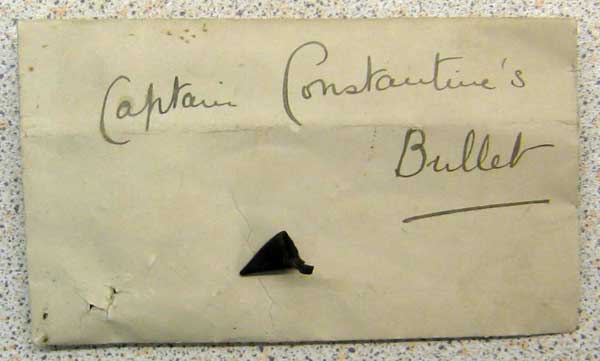 Captain Constantine's
Bullet